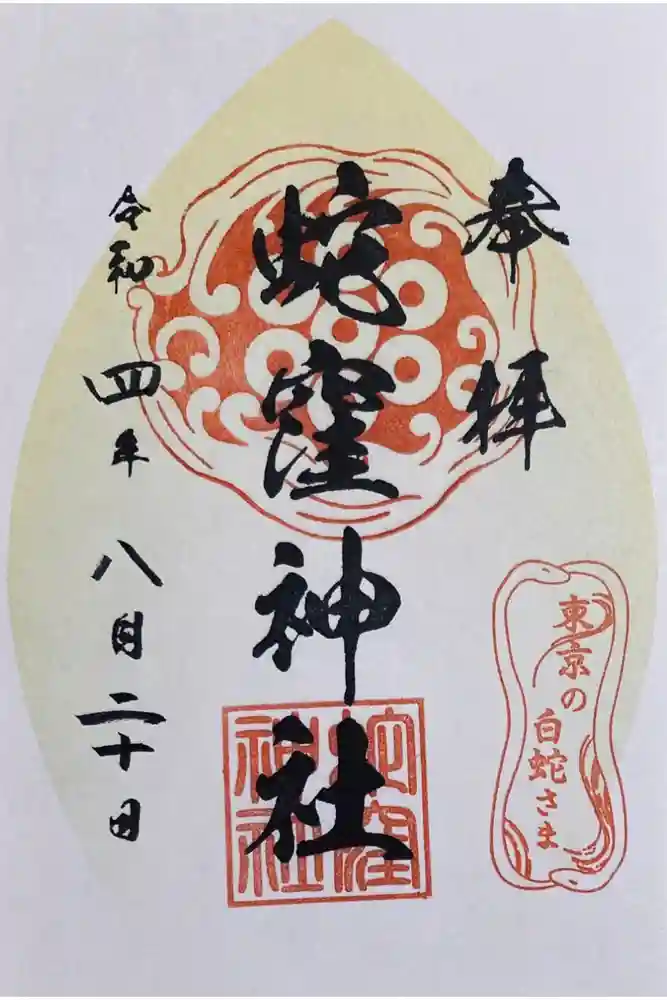 奉拝
蛇窪神社
令和四年八月二十日
蛇窪
神社
東京の
白蛇さま